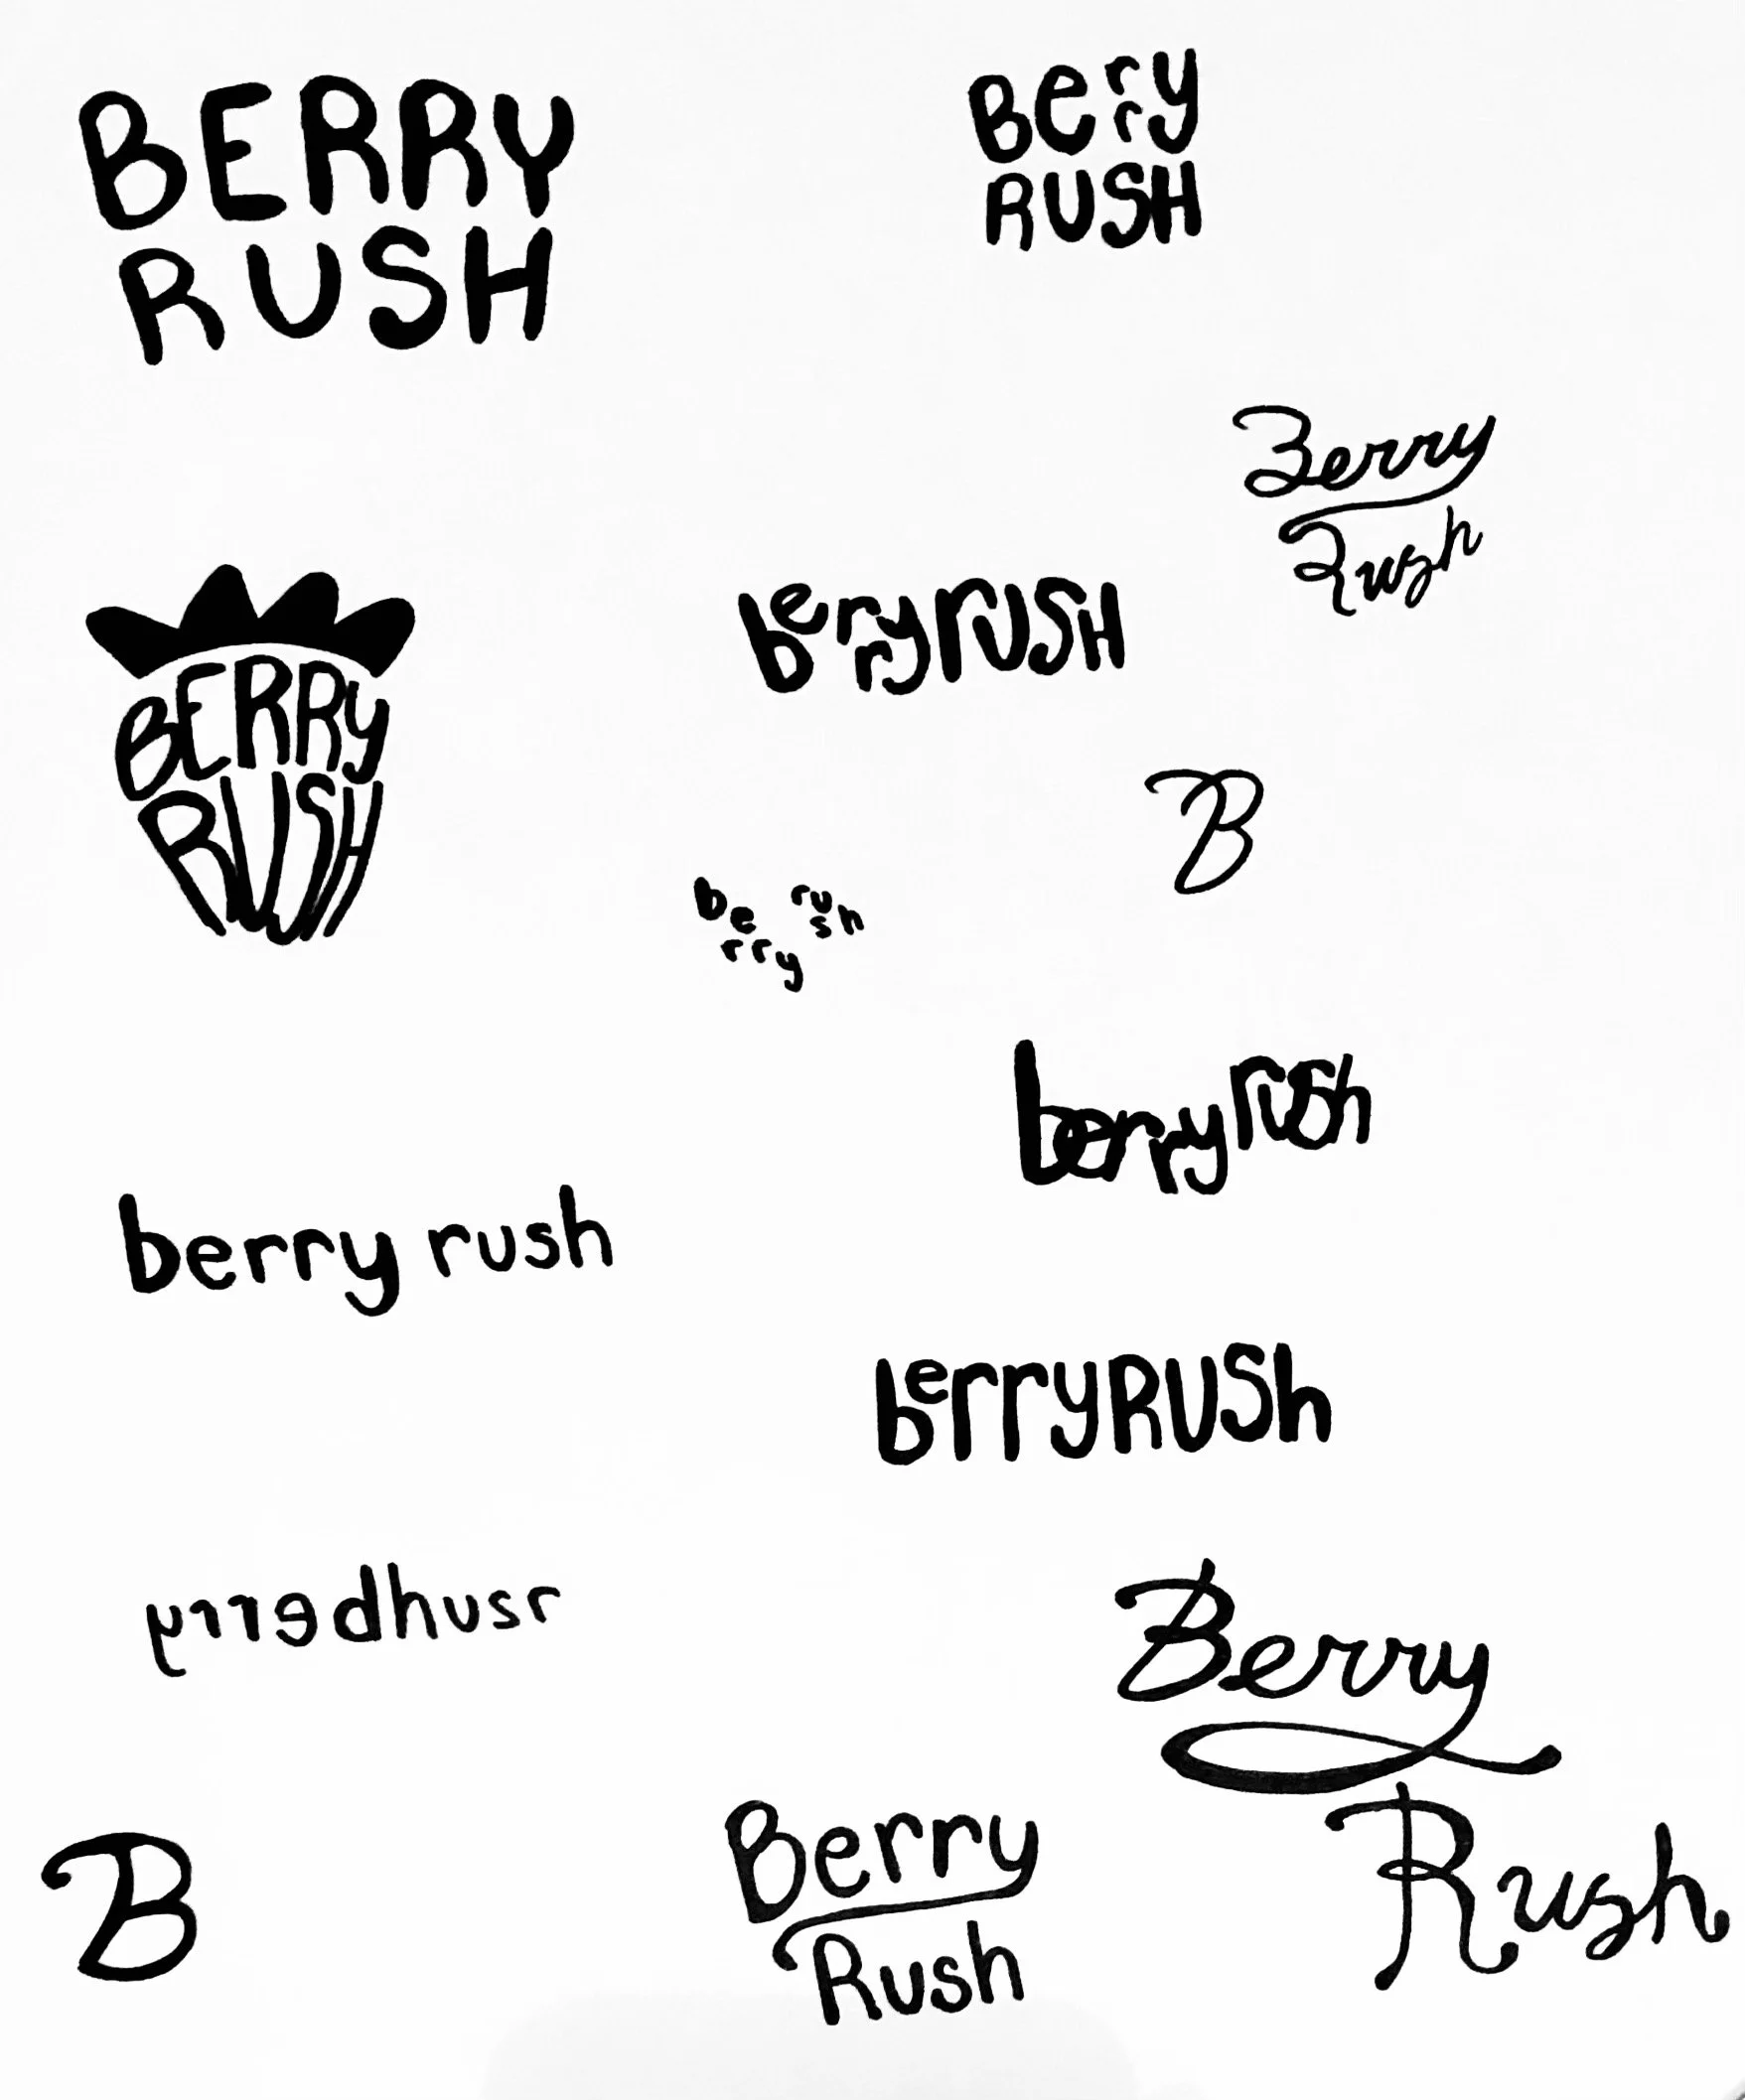 BERRY
RUSH
Berry
RUSH
Berry
Rush
BERRY
RUSH
berryrUSH
B
be
rry
ru
sh
berryrush
berry rush
berryRUSh
yrrebhusr
Berry
Rush
B
Berry
Rush